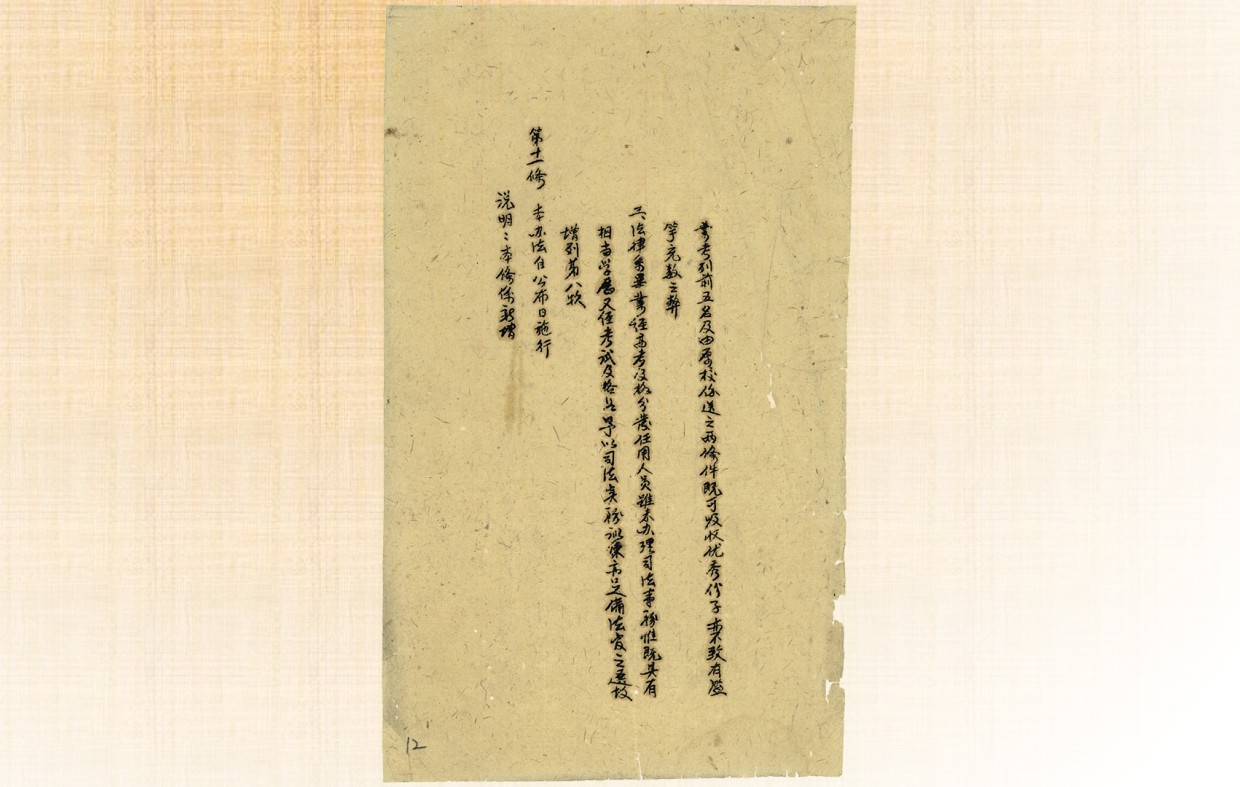 業考列前五名及由原校保送之兩條件既可吸收优秀份子亦不致有濫
竽充数之弊
六、法律系畢業經高考及格分發任用人员雖未办理司法事務惟既具有
相当学歷又經考試及格如予以司法实務訓練亦足備法官之選故
增列第八款
第十一條 本办法自公布日施行
说明：本條係新增
12